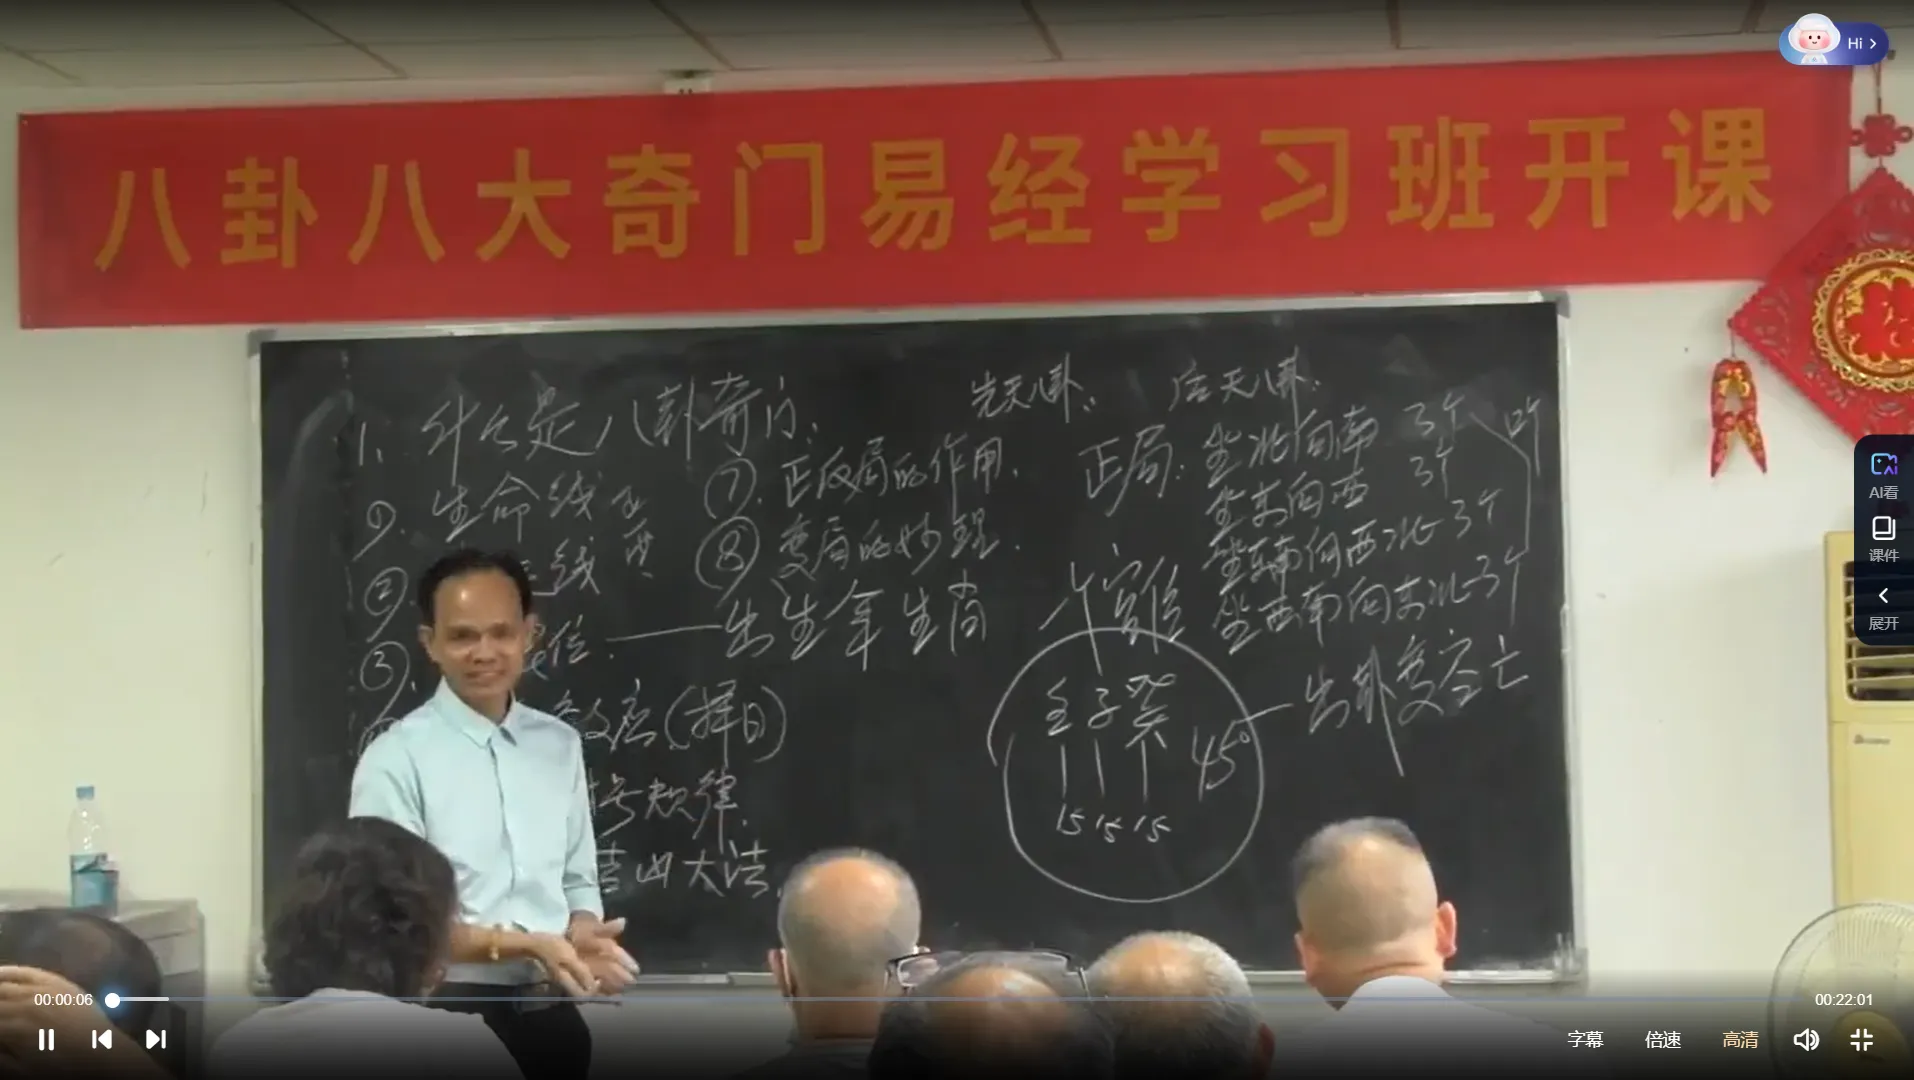 Hi
八卦八大奇门易经学习班开课
先天八卦.
后天八卦.
1、什么是八卦奇门.
生命线
⑦.正反局的作用.
⑧变局的妙理.
③.
位.——出生年生肖
效应(择日)
号规律.
吉凶大法.
正局:坐北向南 3个
坐东向西 3个
坐东南向西北 3个
坐西南向东北 3个
壬子癸
15 15 15
45°——出卦变空亡
AI看
课件
展开
00:00:06
00:22:01
字幕
倍速
高清